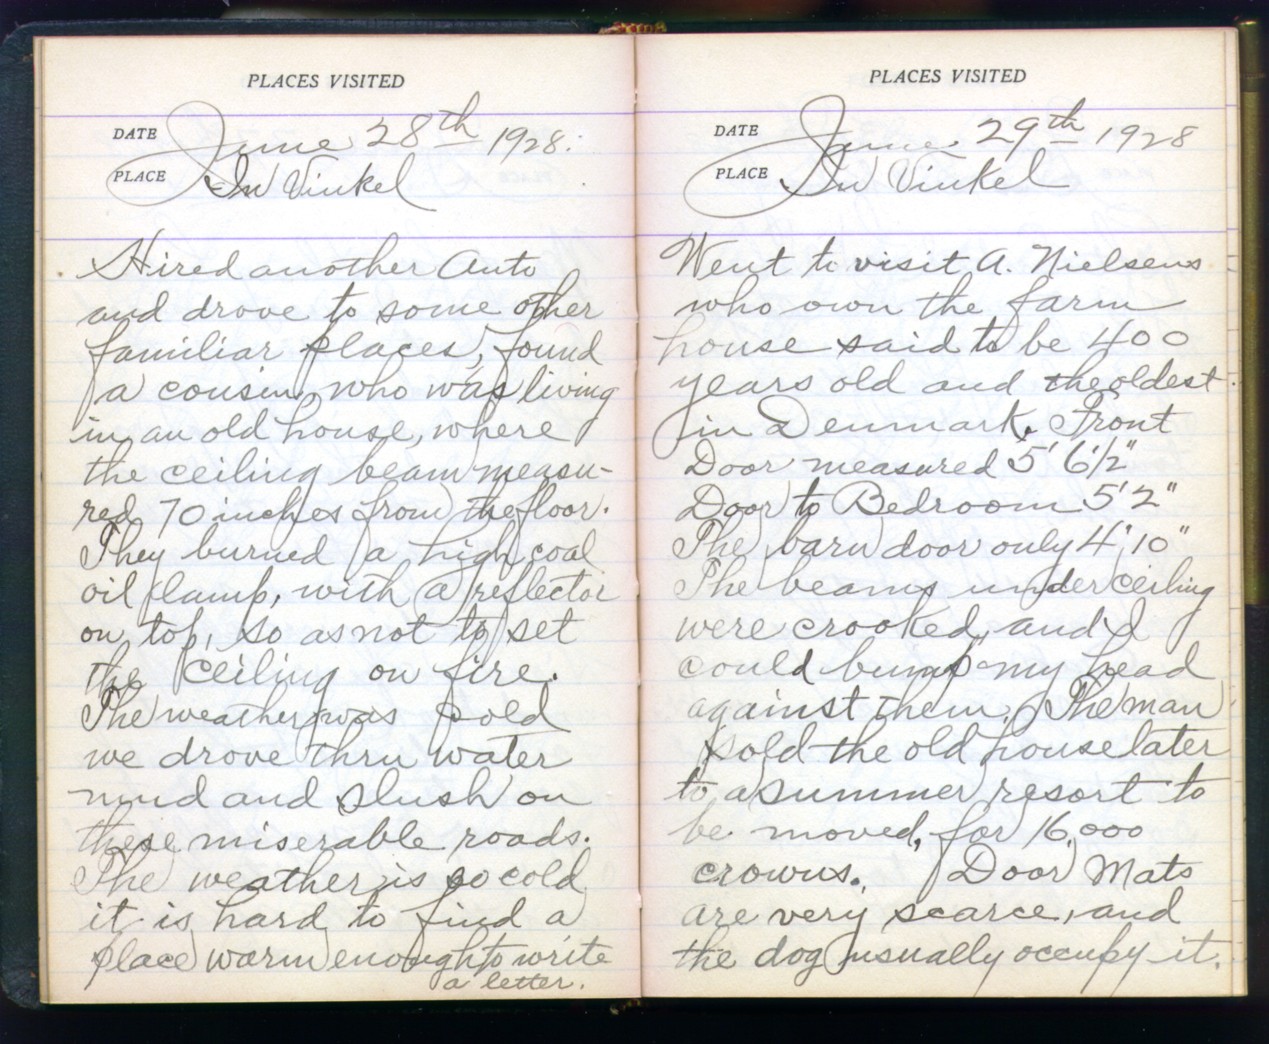 PLACES VISITED
DATE June 28th 1928.
PLACE In Vinkel
Hired another Auto
and drove to some other
familiar places, found
a cousin, who was living
in an old house, where
the ceiling beam measu-
red 70 inches from the floor.
They burned a high coal
oil lamp, with a reflector
on top, so as not to set
the ceiling on fire.
The weather was cold
we drove thru water
mud and slush on
these miserable roads.
The weather is so cold
it is hard to find a
place warm enough to write
a letter.
PLACES VISITED
DATE June 29th 1928
PLACE In Vinkel
Went to visit A. Nielsens
who own the farm
house said to be 400
years old and the oldest
in Denmark. Front
Door measured 5' 6 1/2"
Door to Bedroom 5' 2"
The barn door only 4' 10"
The beams under ceiling
were crooked, and I
could bump my head
against them. The man
sold the old house later
to a summer resort to
be moved, for 16,000
crowns. Door Mats
are very scarce, and
the dog usually occupy it.